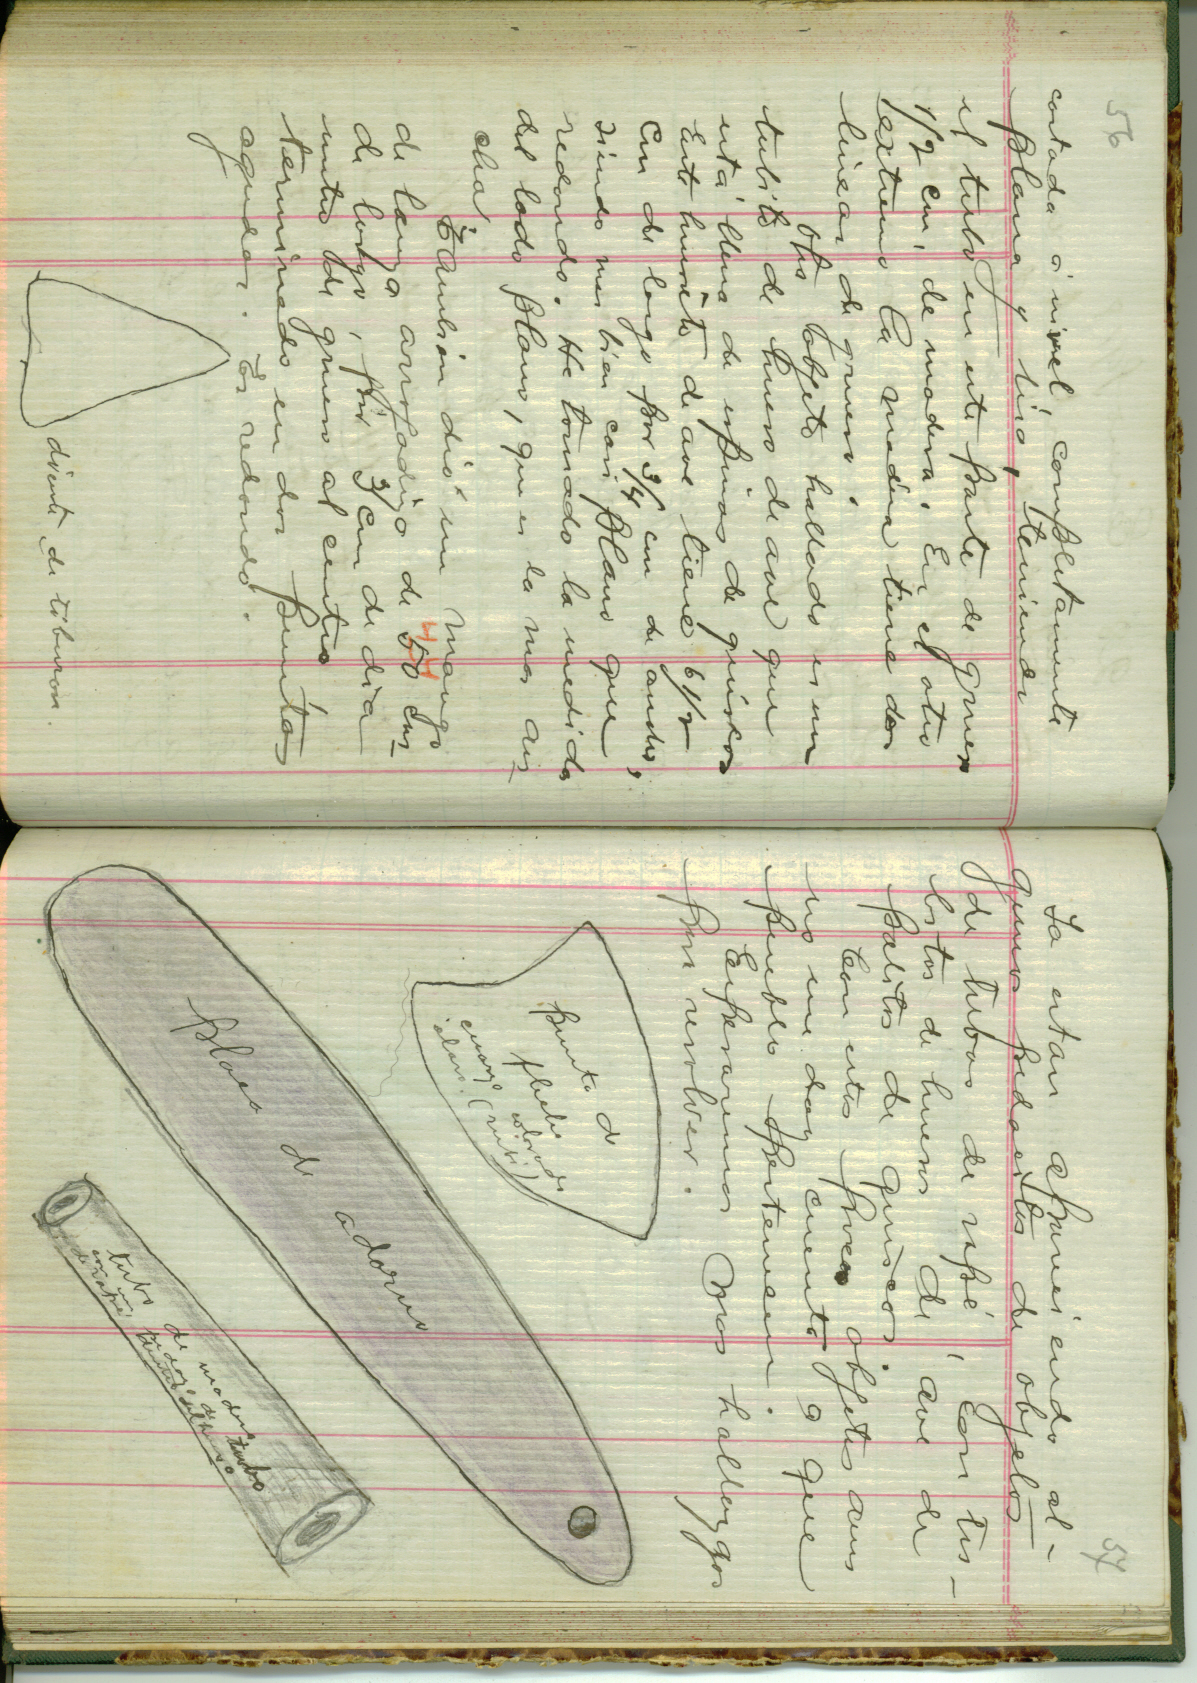 56
cortada a nivel, completamente
plana y lisa, teniendo
el tubo en esta parte de grueso
1/2 cm, de madera. En el otro
extremo la madera tiene dos
lineas de grueso.
Otro objeto hallado es un
tubito de hueso de ave que
está lleno de espinas de quiscos
Este huesito de ave tiene 6 1/2
cm de largo por 3/4 cm de ancho,
siendo mas bien casi plano que
redondo. He tomado la medida
del lado plano, que es la mas an-
cha.
Tambien dió un mango
de lanza arrojadiza de 50 44 cm-
de largo, por 3/ cm de dia-
metro de grueso al centro
terminado en dos puntas
agudas. Es redondo.
diente de tiburon.
57
Ya estan apareciendo al-
gunos pedacitos de objetos
de tubos de rapé, con tres
de huesos de ave de
palitos de quiscos
Con estos pocos objetos aun
no me doy cuenta a que
pueblo pertenecen.
Esperaremos mas hallazgos
por resolver.
punta de
flecha
colorado
placa de adorno
tubo de madera